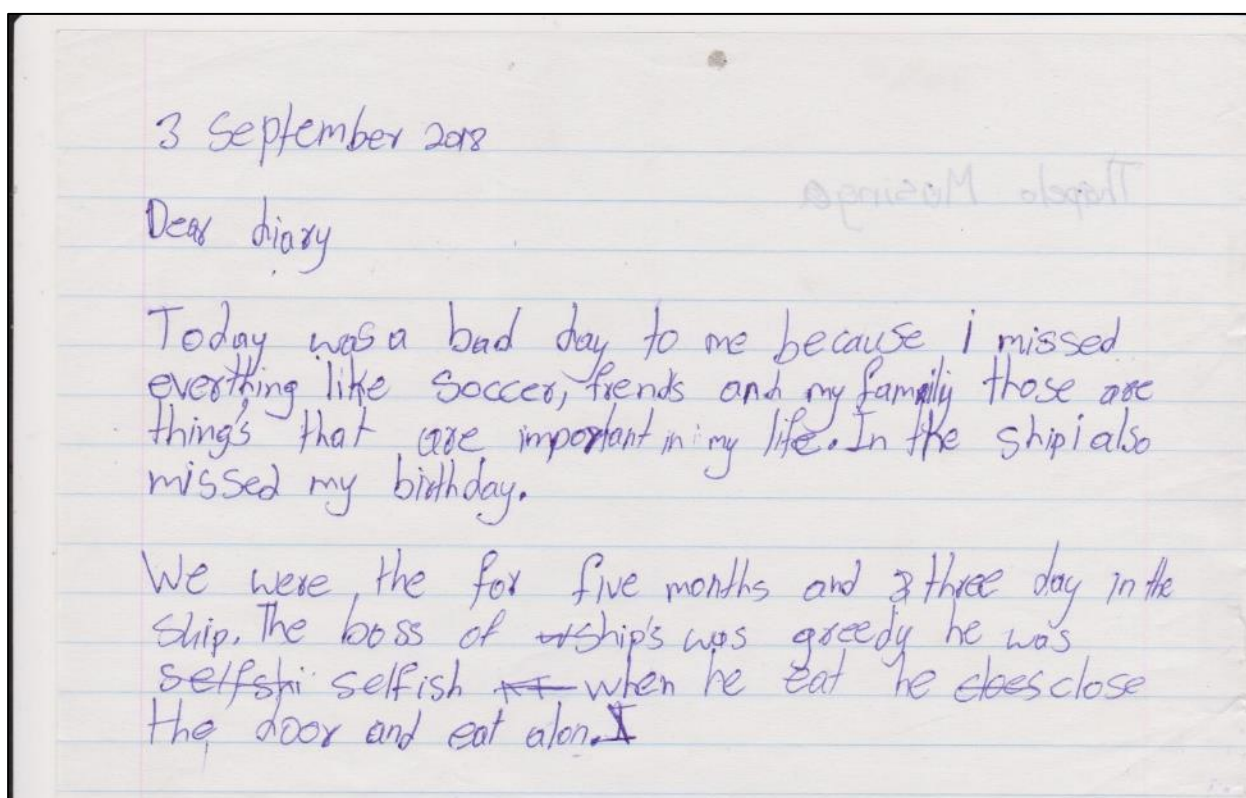 3 September 2018
Thapelo Masinga
Dear diary
Today was a bad day to me because i missed
everthing like soccer, frends and my family those are
thing's that are important in my life. In the ship i also
missed my birthday.
We were the for five months and 3 three day in the
ship. The boss of ship's was greedy he was
selfshi selfish when he eat he cloes close
the door and eat alon. I